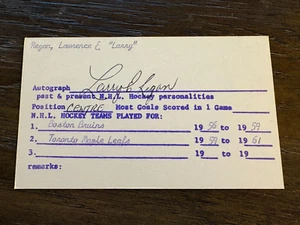 Regan, Lawrence E. "Larry"
Autograph Larry Regan
past & present N.H.L. Hockey personalities
Position CENTRE Most Goals Scored in 1 Game
N.H.L. HOCKEY TEAMS PLAYED FOR:
1. Boston Bruins 19 56 to 19 59
2. Toronto Maple Leafs 19 59 to 19 61
3. 19 to 19
remarks: